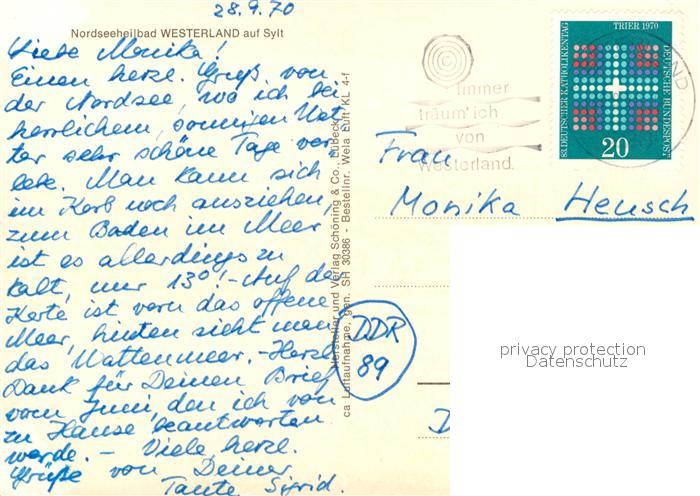 28.9.70
Nordseeheilbad WESTERLAND auf Sylt
Liebe Monika!
Einen herzl. Gruß von
der Nordsee, wo ich bei
herrlichem, sonnigen Wet-
ter sehr schöne Tage ver-
lebe. Man kann sich
im Korb noch ausziehen,
zum Baden im Meer
ist es allerdings zu
kalt, nur 13°! - Auf der
Karte ist vorn das offene
Meer, hinten sieht man
das Wattenmeer. - Herzl.
Dank für Deinen Brief
vom Juni, den ich von
zu Hause beantworten
werde. - Viele herzl.
Grüße von Deiner
Tante Sigrid.
Hersteller und Verlag Schöning & Co., Lübeck
ca Luftaufnahme, gen. SH 30386 - Bestellnr. Wela Luft KL 4-f
Immer
träum' ich
von
Westerland.
83. DEUTSCHER KATHOLIKENTAG
TRIER 1970
DEUTSCHE BUNDESPOST
20
Frau
Monika Heusch
DDR
89
D
privacy protection
Datenschutz